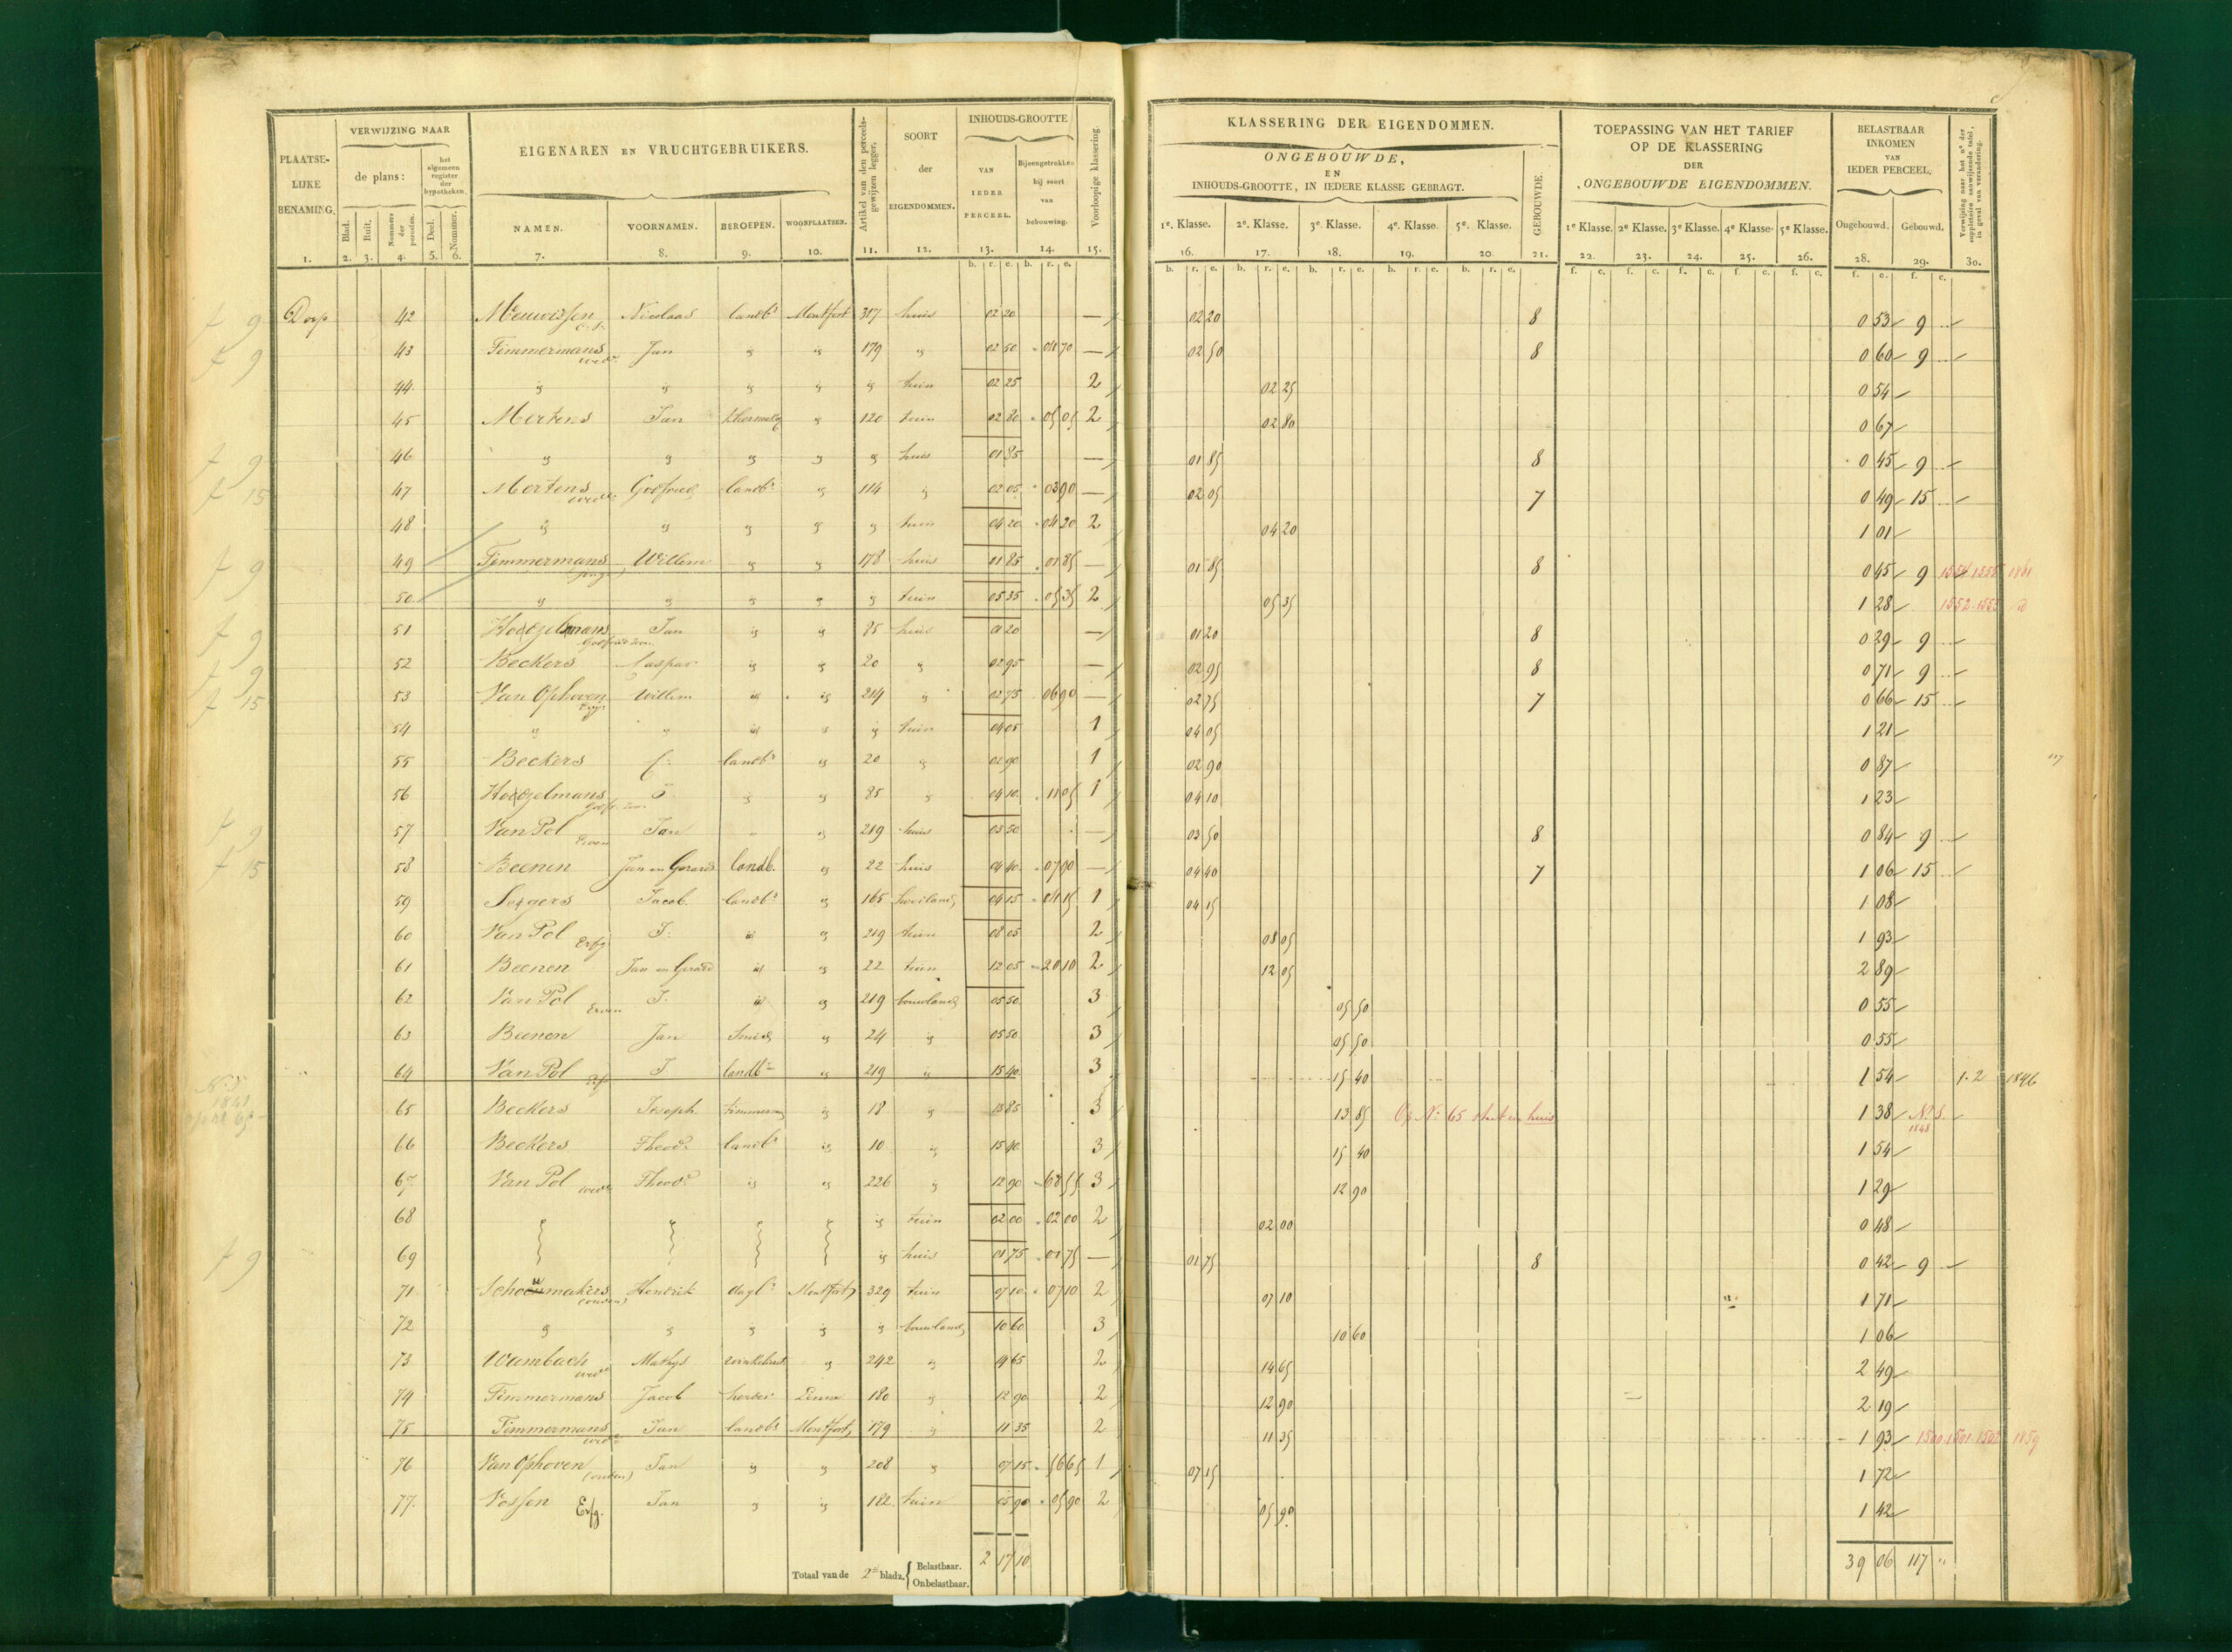 VERWIJZING NAAR
PLAATSELIJKE BENAMING.
de plans:
het algemeen register der hypotheken.
Blad. Ruit. Nommers der perceelen. Deel. Nommer.
EIGENAREN EN VRUCHTGEBRUIKERS.
NAMEN. VOORNAMEN. BEROEPEN. WOONPLAATSEN.
Artikel van den perceelsgewijzen legger.
SOORT der EIGENDOMMEN.
INHOUDS-GROOTTE
VAN IEDER PERCEEL.
Bijeengetrokken bij soort van bebouwing.
Voorloopige klassering.
1. 2. 3. 4. 5. 6. 7. 8. 9. 10. 11. 12. 13. 14. 15.
b. r. e. b. r. e.
KLASSERING DER EIGENDOMMEN.
ONGEBOUWDE,
EN
INHOUDS-GROOTTE, IN IEDERE KLASSE GEBRAGT.
GEBOUWDE.
1e. Klasse. 2e. Klasse. 3e. Klasse. 4e. Klasse. 5e. Klasse.
TOEPASSING VAN HET TARIEF
OP DE KLASSERING
DER
ONGEBOUWDE EIGENDOMMEN.
1e Klasse. 2e Klasse. 3e Klasse. 4e Klasse. 5e Klasse.
BELASTBAAR
INKOMEN
VAN
IEDER PERCEEL.
Ongebouwd. Gebouwd.
Verwijzing naar het no. der suppletoire aanwijzende tafel, in geval van verandering.
16. 17. 18. 19. 20. 21. 22. 23. 24. 25. 26. 28. 29. 30.
b. r. e. b. r. e. b. r. e. b. r. e. b. r. e. f. c. f. c. f. c. f. c. f. c. f. c. f. c.
f 9 Dorp 42 Meuwissen Nicolaas landbr Montfort 317 huis 02 20 — 02 20 8 0 53 9
f 9 43 Timmermans wede Jan " " 179 " 02 50 04 70 — 02 50 8 0 60 9
44 " " " " " tuin 02 25 2 02 25 0 54
45 Mertens Jan " 120 tuin 02 80 05 05 2 02 80 0 67
f 9 46 " " " " " huis 01 85 — 01 85 8 0 45 9
f 15 47 Mertens wede Godfried landbr " 114 " 02 05 03 90 — 02 05 7 0 49 15
48 " " " " " tuin 04 20 04 20 2 04 20 1 01
f 9 49 Timmermans Willem " " 178 huis 01 85 01 85 — 01 85 8 0 45 9 1861
50 " " " " " tuin 05 35 05 35 2 05 35 1 28 1552.1553
f 9 51 Jan " " 85 huis 01 20 — 01 20 8 0 29 9
f 9 52 Beckers Caspar " " 20 " 02 95 — 02 95 8 0 71 9
f 15 53 Van Ophoven Erfg Willem " " 214 " 02 75 06 90 — 02 75 7 0 66 15
54 " " " " " tuin 04 05 1 04 05 1 21
55 Beckers C: landbr " 20 " 02 90 1 02 90 0 87
56 J " " 85 " 04 10 11 05 1 04 10 1 23
f 9 57 Van Pol Erven Jan " " 219 huis 03 50 — 03 50 8 0 84 9
f 15 58 Beenen Jan en Gerard landb. " 22 huis 04 40 07 90 — 04 40 7 1 06 15
59 Jacob landbr " 165 04 15 04 15 1 04 15 1 08
60 Van Pol Erfg J: " " 219 tuin 08 05 2 08 05 1 93
61 Beenen Jan en Gerard " " 22 tuin 12 05 20 10 2 12 05 2 89
62 Van Pol Erven J. " " 219 bouwland 05 50 3 05 50 0 55
63 Beenen Jan Smid " 24 " 05 50 3 05 50 0 55
64 Van Pol Erfg J landbr " 219 " 15 40 3 15 40 1 54 1.2 1846
65 Beckers Joseph timmerm " 18 " 13 85 3 13 85 Op No 65 staat een huis 1 38 No 8. 1848
66 Beckers Theodr landbr " 10 " 15 40 3 15 40 1 54
67 Van Pol wede Theodr " " 226 " 12 90 68 55 3 12 90 1 29
68 " tuin 02 00 02 00 2 02 00 0 48
f 9 69 " huis 01 75 01 75 — 01 75 8 0 42 9
71 Schoenmakers (ouden) Hendrik dagl. Montfort 329 tuin 07 10 07 10 2 07 10 1 71
72 " " " " " bouwland 10 60 3 10 60 1 06
73 Wambach wede Mathys " 242 " 14 65 2 14 65 2 49
74 Timmermans Jacob Linne 180 " 12 90 2 12 90 2 19
75 Timmermans wede Jan landbr Montfort 179 " 11 35 2 11 35 1 93 1500.1501.1502 1859
76 Van Ophoven (ouden) Jan " " 208 " 07 15 56 65 1 07 15 1 72
77. Vossen Erfg. Jan " " 182 tuin 05 90 05 90 2 05 90 1 42
Totaal van de 2e bladz. { Belastbaar. 2 17 10
Onbelastbaar.
39 06 117 "